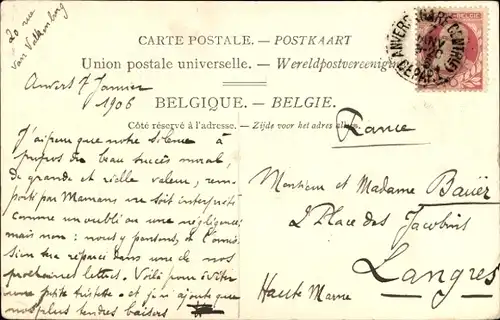 20 rue
Van Valkenburg
Anvers 7 Janvier
1906
CARTE POSTALE. — POSTKAART
Union postale universelle. — Wereldpostvereeniging
BELGIQUE. — BELGIE.
Côté réservé à l'adresse. — Zijde voor het adres
BELGIË
ANVERS (GARE CENTR
DEPART
J'ai peur que notre silence à
propos du beau succès mural,
de grande et réelle valeur, rem-
porté par Maman ne soit interprété
comme un oubli ou une négligence;
mais non: nous y pensons, et l'omis-
sion sera réparée dans une de nos
prochaines lettres. Voilà pour éviter
une petite tristesse - et j'y ajoute que
nos plus tendres baisers
France
Monsieur et Madame Bauër
2 Place des Jacobins
Langres
Haute Marne